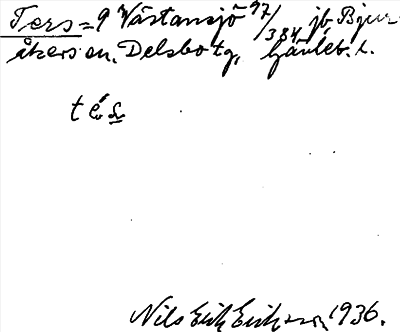 Ters = 9 Västansjö 97/384 jb Bjur-
åkers sn. Delsbo tg, Gävleb. l.
té̬s̳
Nils Erik Eriksson 1936.